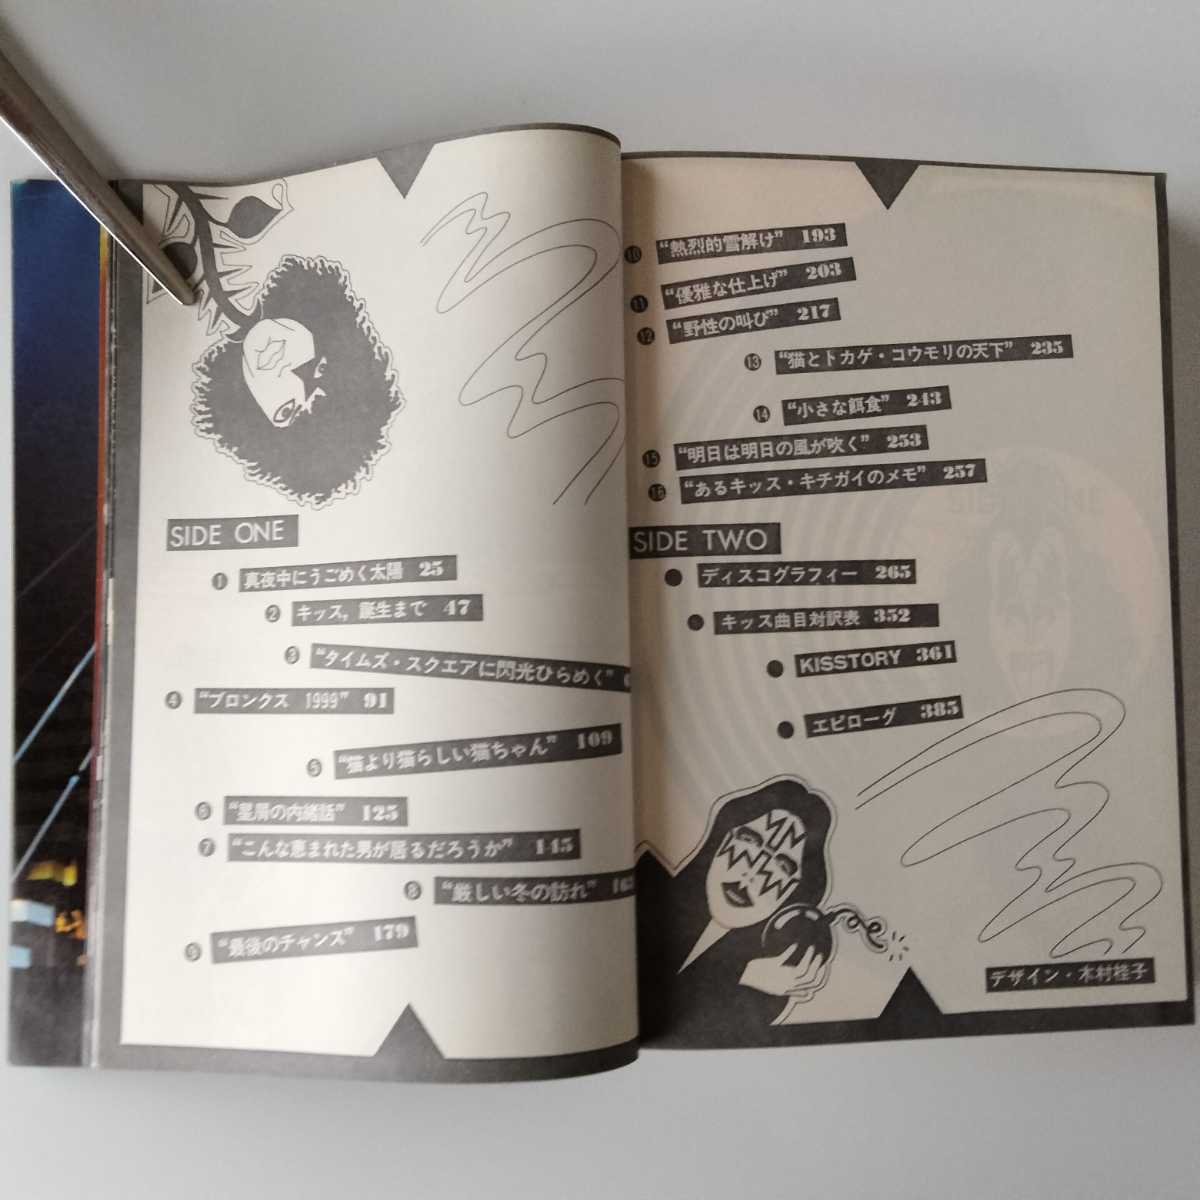 SIDE ONE
❶ 真夜中にうごめく太陽 25
❷ キッス, 誕生まで 47
❸ “タイムズ・スクエアに閃光ひらめく”
❹ “ブロンクス 1999” 91
❺ “猫より猫らしい猫ちゃん” 109
❻ “星屑の内緒話” 125
❼ “こんな恵まれた男が居るだろうか” 145
❽ “厳しい冬の訪れ”
❾ “最後のチャンス” 179
❿ “熱烈的雪解け” 193
⓫ “優雅な仕上げ” 203
⓬ “野性の叫び” 217
⓭ “猫とトカゲ・コウモリの天下” 235
⓮ “小さな餌食” 243
⓯ “明日は明日の風が吹く” 253
⓰ “あるキッス・キチガイのメモ” 257
SIDE TWO
● ディスコグラフィー 265
● キッス曲目対訳表 352
● KISSTORY 361
● エピローグ 385
デザイン・木村桂子